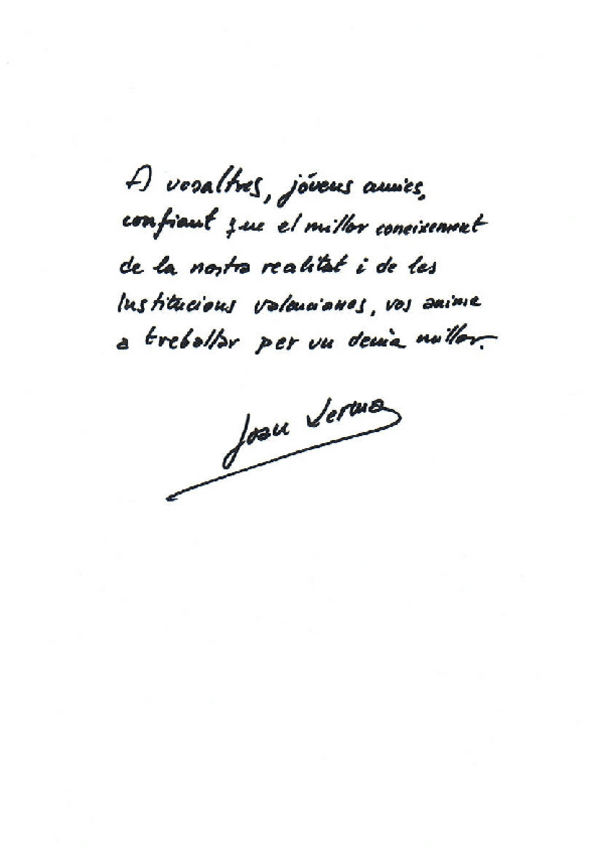 A vosaltres, jóvens amics,
confiant que el millor coneixement
de la nostra realitat i de les
Institucions valencianes, vos anime
a treballar per un demà millor.
Joan Lerma